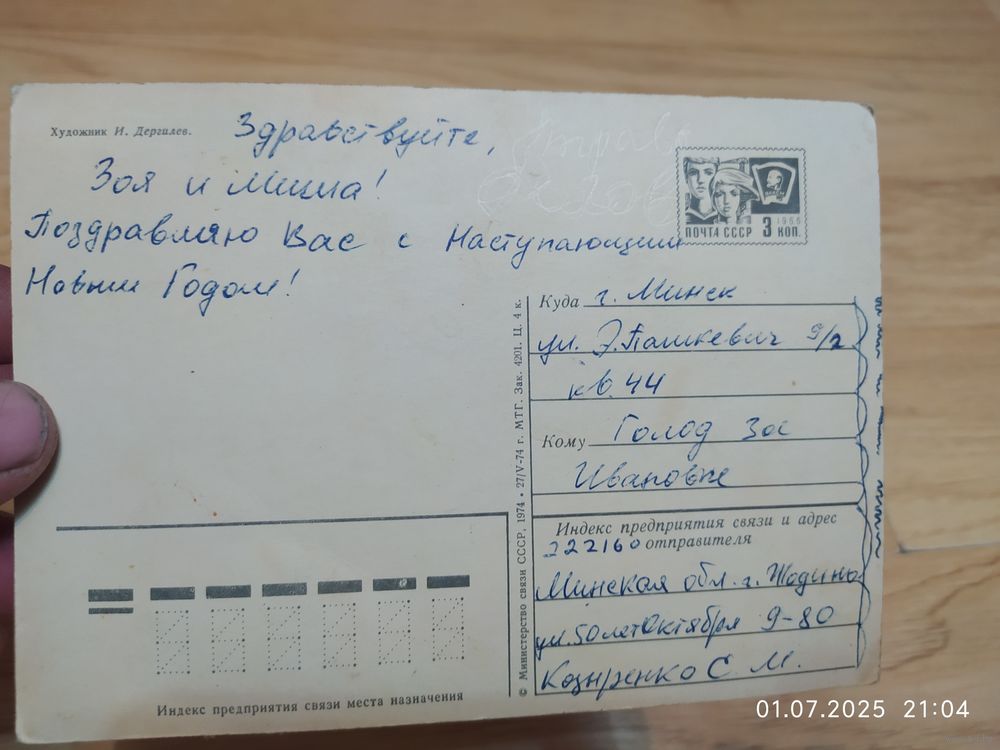 Художник И. Дергилев.
Здравствуйте,
Зоя и Миша!
Поздравляю Вас с Наступающим
Новым Годом!
ПОЧТА СССР 3 КОП. 1966
Куда г. Минск
ул. Э. Пашкевич 9/2
кв. 44
Кому Голод Зое
Ивановне
Индекс предприятия связи и адрес
отправителя
222160
Минская обл. г. Жодино
ул. 50 лет Октября 9-80
Козыренко С М.
© Министерство связи СССР, 1974 • 27/V-74 г. МТГ. Зак. 4201. Ц. 4 к.
Индекс предприятия связи места назначения
01.07.2025 21:04